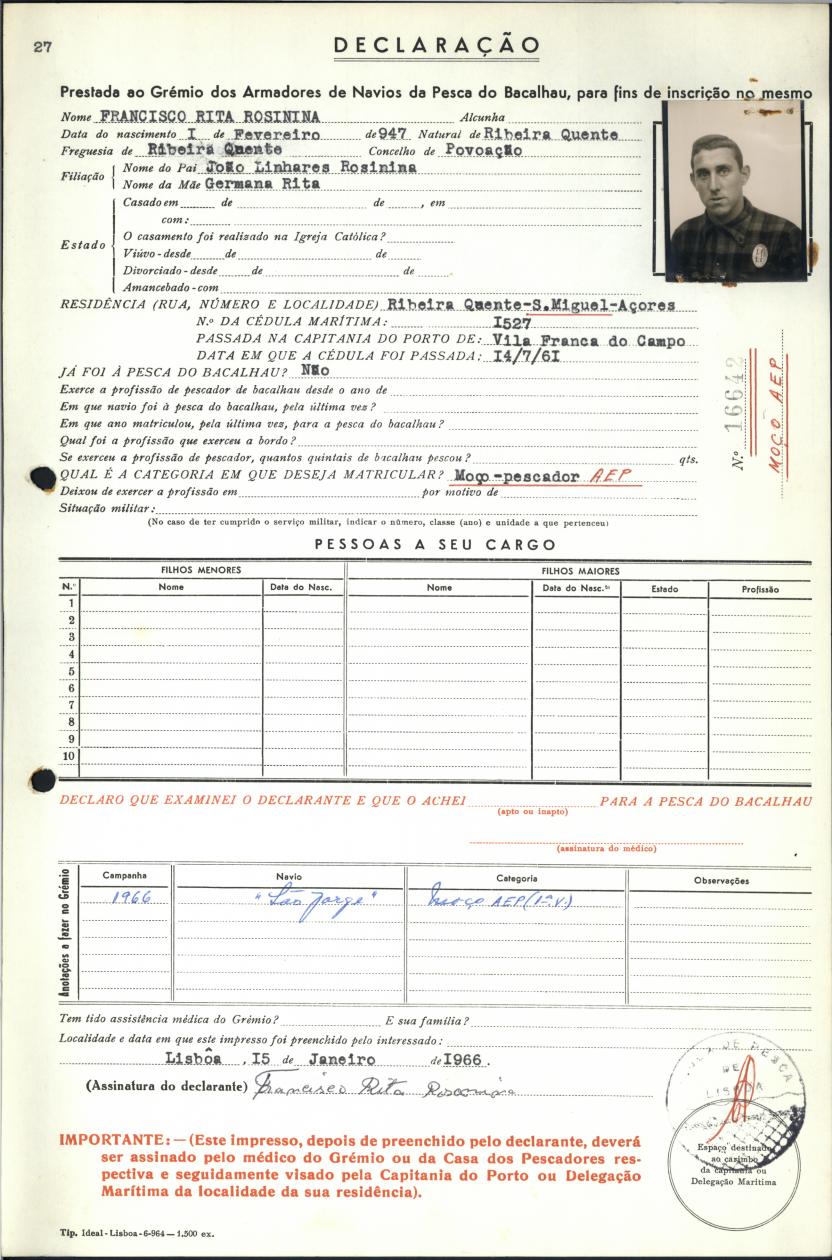 27
DECLARAÇÃO
Prestada ao Grémio dos Armadores de Navios da Pesca do Bacalhau, para fins de inscrição no mesmo
Nome FRANCISCO RITA ROSININA Alcunha
Data do nascimento I de Fevereiro de 947 Natural de Ribeira Quente
Freguesia de Ribeira Quente Concelho de Povoação
Filiação Nome do Pai João Linhares Rosinina
Nome da Mãe Germana Rita
Estado Casado em de de , em
com:
O casamento foi realizado na Igreja Católica?
Viúvo-desde de de
Divorciado-desde de de
Amancebado-com
RESIDÊNCIA (RUA, NÚMERO E LOCALIDADE) Ribeira Quente-S.Miguel-Açores
N.º DA CÉDULA MARÍTIMA: I527
PASSADA NA CAPITANIA DO PORTO DE: Vila Franca do Campo
DATA EM QUE A CÉDULA FOI PASSADA: I4/7/6I
JÁ FOI À PESCA DO BACALHAU? Não
Exerce a profissão de pescador de bacalhau desde o ano de
Em que navio foi à pesca do bacalhau, pela última vez?
Em que ano matriculou, pela última vez, para a pesca do bacalhau?
Qual foi a profissão que exerceu a bordo?
Se exerceu a profissão de pescador, quantos quintais de bacalhau pescou? qts.
QUAL É A CATEGORIA EM QUE DESEJA MATRICULAR? Moço-pescador AEP
Deixou de exercer a profissão em por motivo de
Situação militar:
(No caso de ter cumprido o serviço militar, indicar o número, classe (ano) e unidade a que pertenceu)
N.º 16642
MOÇO AEP
PESSOAS A SEU CARGO
FILHOS MENORES FILHOS MAIORES
N.º Nome Data do Nasc. Nome Data do Nasc.to Estado Profissão
1
2
3
4
5
6
7
8
9
10
DECLARO QUE EXAMINEI O DECLARANTE E QUE O ACHEI PARA A PESCA DO BACALHAU
(apto ou inapto)
(assinatura do médico)
Anotações a fazer no Grémio
Campanha Navio Categoria Observações
1966 "São Jorge" Moço AEP (1ª v.)
Tem tido assistência médica do Grémio? E sua família?
Localidade e data em que este impresso foi preenchido pelo interessado:
Lisbôa , I5 de Janeiro de I966.
(Assinatura do declarante) Francisco Rita
DE PESCA
DE
LISBOA
Espaço destinado
ao carimbo
da capitania ou
Delegação Marítima
IMPORTANTE: — (Este impresso, depois de preenchido pelo declarante, deverá
ser assinado pelo médico do Grémio ou da Casa dos Pescadores res-
pectiva e seguidamente visado pela Capitania do Porto ou Delegação
Marítima da localidade da sua residência).
Tip. Ideal - Lisboa - 6-964 — 1.500 ex.